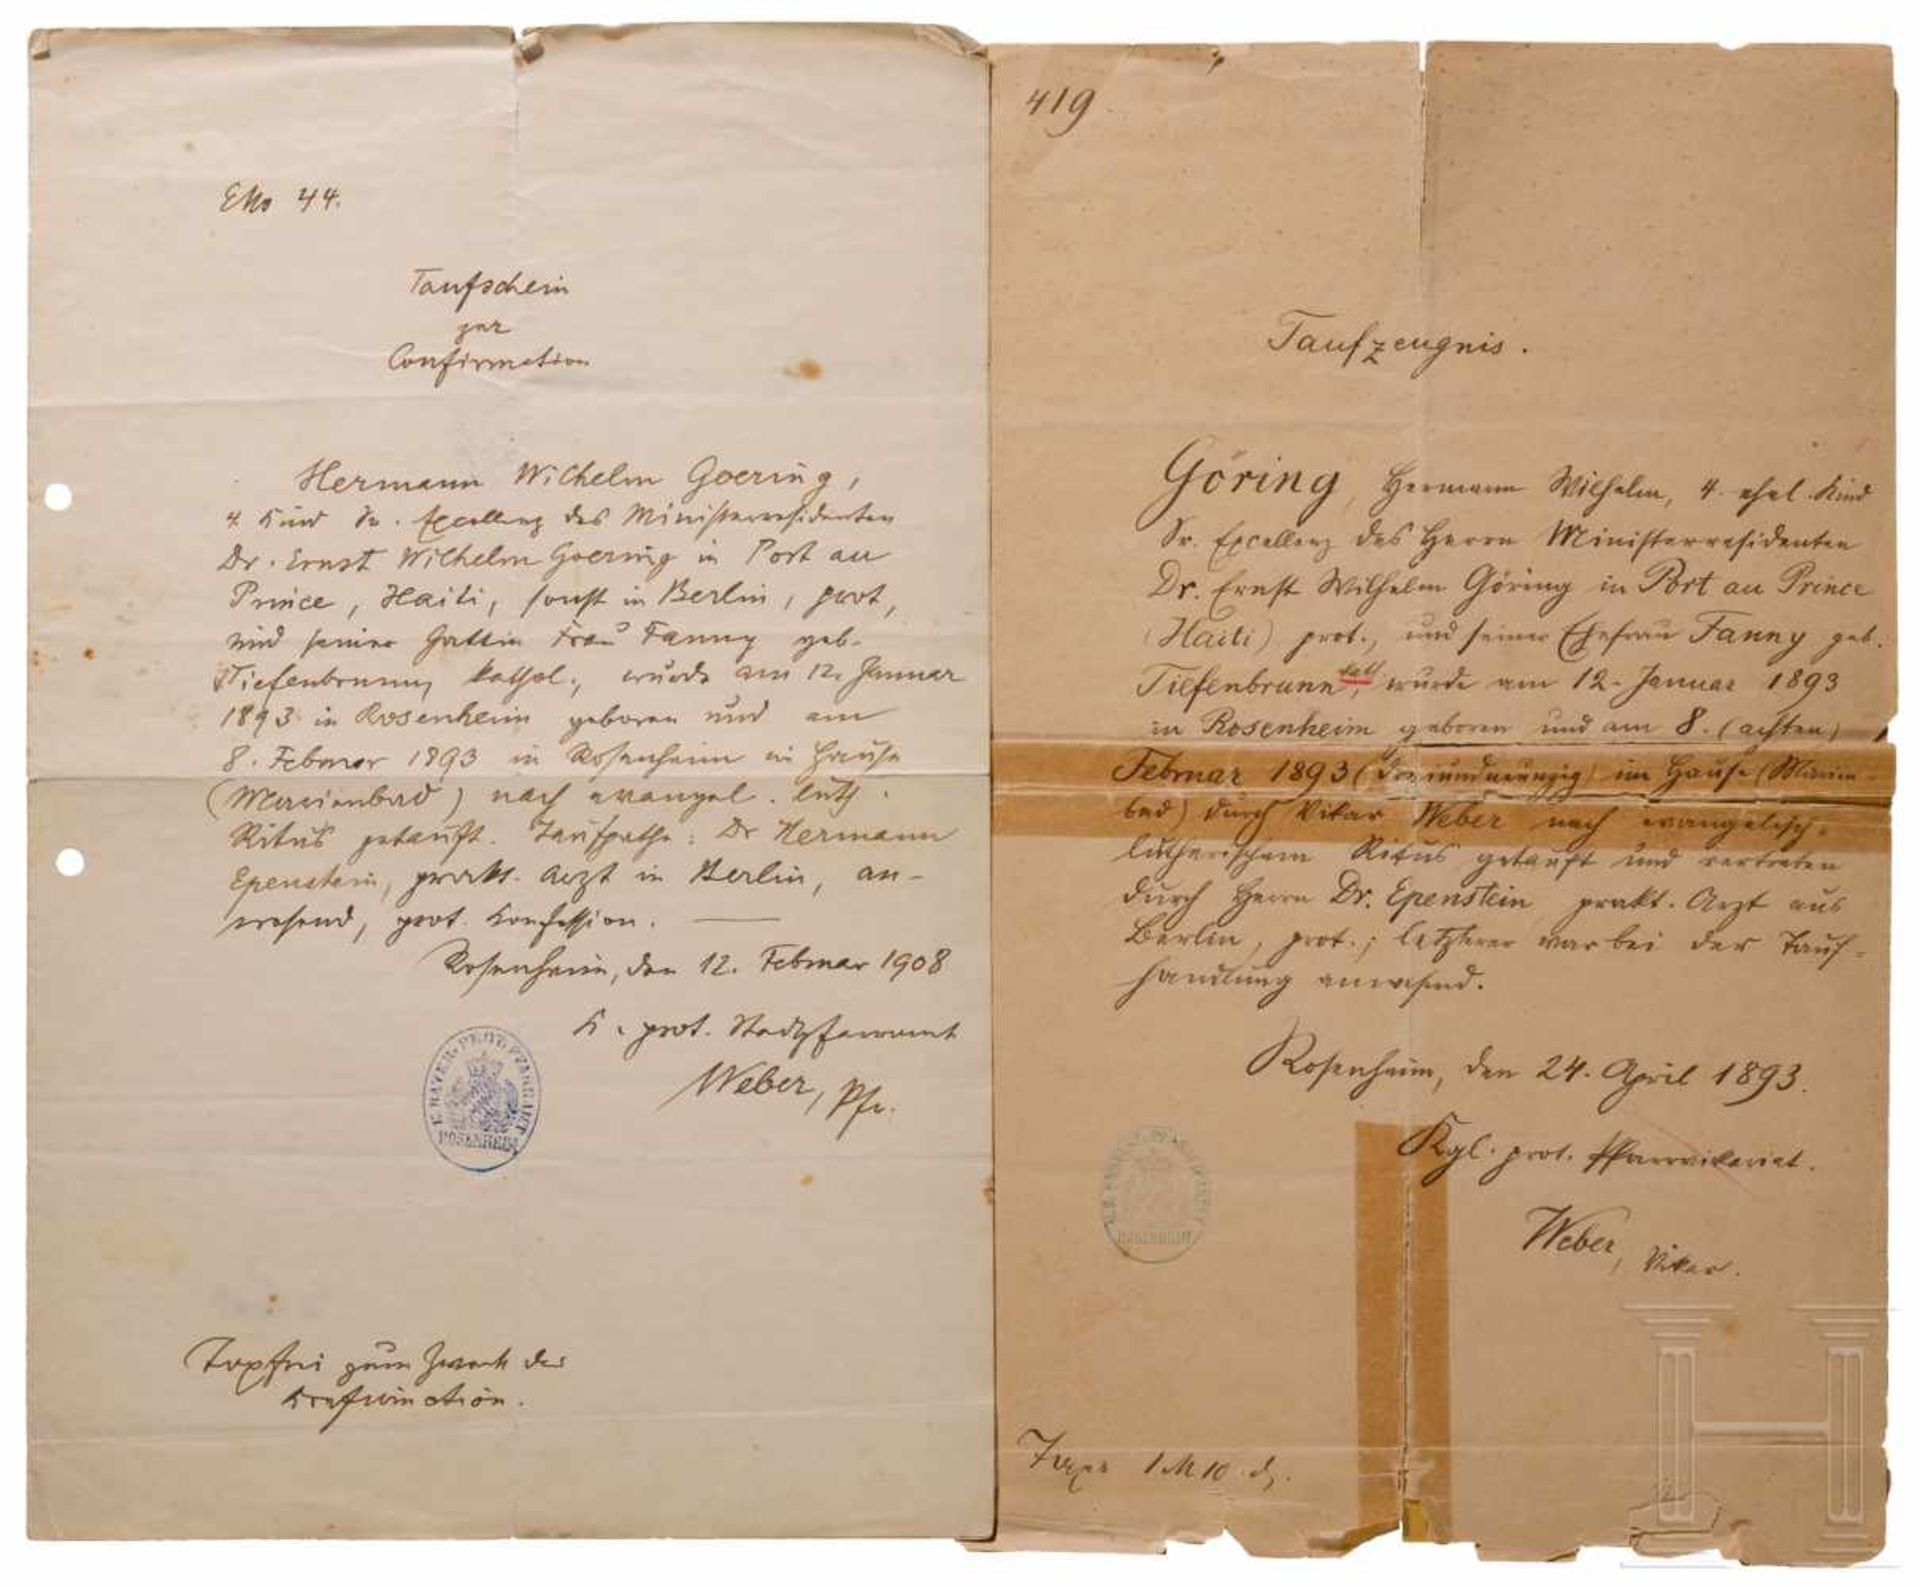 ENo 44.
Taufschein
zur
Confirmation
Hermann Wilhelm Goering,
4. Kind Sr. Excellenz des Ministerresidenten
Dr. Ernst Wilhelm Goering in Port au
Prince, Haiti, sonst in Berlin, prot,
und seiner Gattin Frau Fanny geb.
Tiefenbrunn, kathol., wurde am 12. Januar
1893 in Rosenheim geboren und am
8. Februar 1893 in Rosenheim im Hause
(Marienbad) nach evangel. luth.
Ritus getauft. Taufpathe: Dr Hermann
Epenstein, prakt. Arzt in Berlin, an-
wesend, prot. Konfession.
Rosenheim, den 12. Februar 1908
K. prot. Stadtpfarramt
Weber, Pfr.
K. BAYER. PROT. PFARRAMT
ROSENHEIM
Taxfrei zum Zweck der
Konfirmation.
419
Taufzeugnis.
Göring, Hermann Wilhelm, 4. ehel. Kind
Sr. Excellenz des Herrn Ministerresidenten
Dr. Ernst Wilhelm Göring in Port au Prince
(Haiti) prot., und seiner Ehefrau Fanny geb.
Tiefenbrunn, kath wurde am 12. Januar 1893
in Rosenheim geboren und am 8. (achten)
Februar 1893 (dreiundneunzig) im Hause (Marien-
bad) durch Vikar Weber nach evangelisch-
lutherischem Ritus getauft und vertreten
durch Herrn Dr. Epenstein prakt. Arzt aus
Berlin, prot.; letzterer war bei der Tauf-
handlung anwesend.
Rosenheim, den 24. April 1893.
Kgl. prot. Pfarrvikariat.
Weber, Vikar.
ROSENHEIM
Taxe 1 M 10 d.